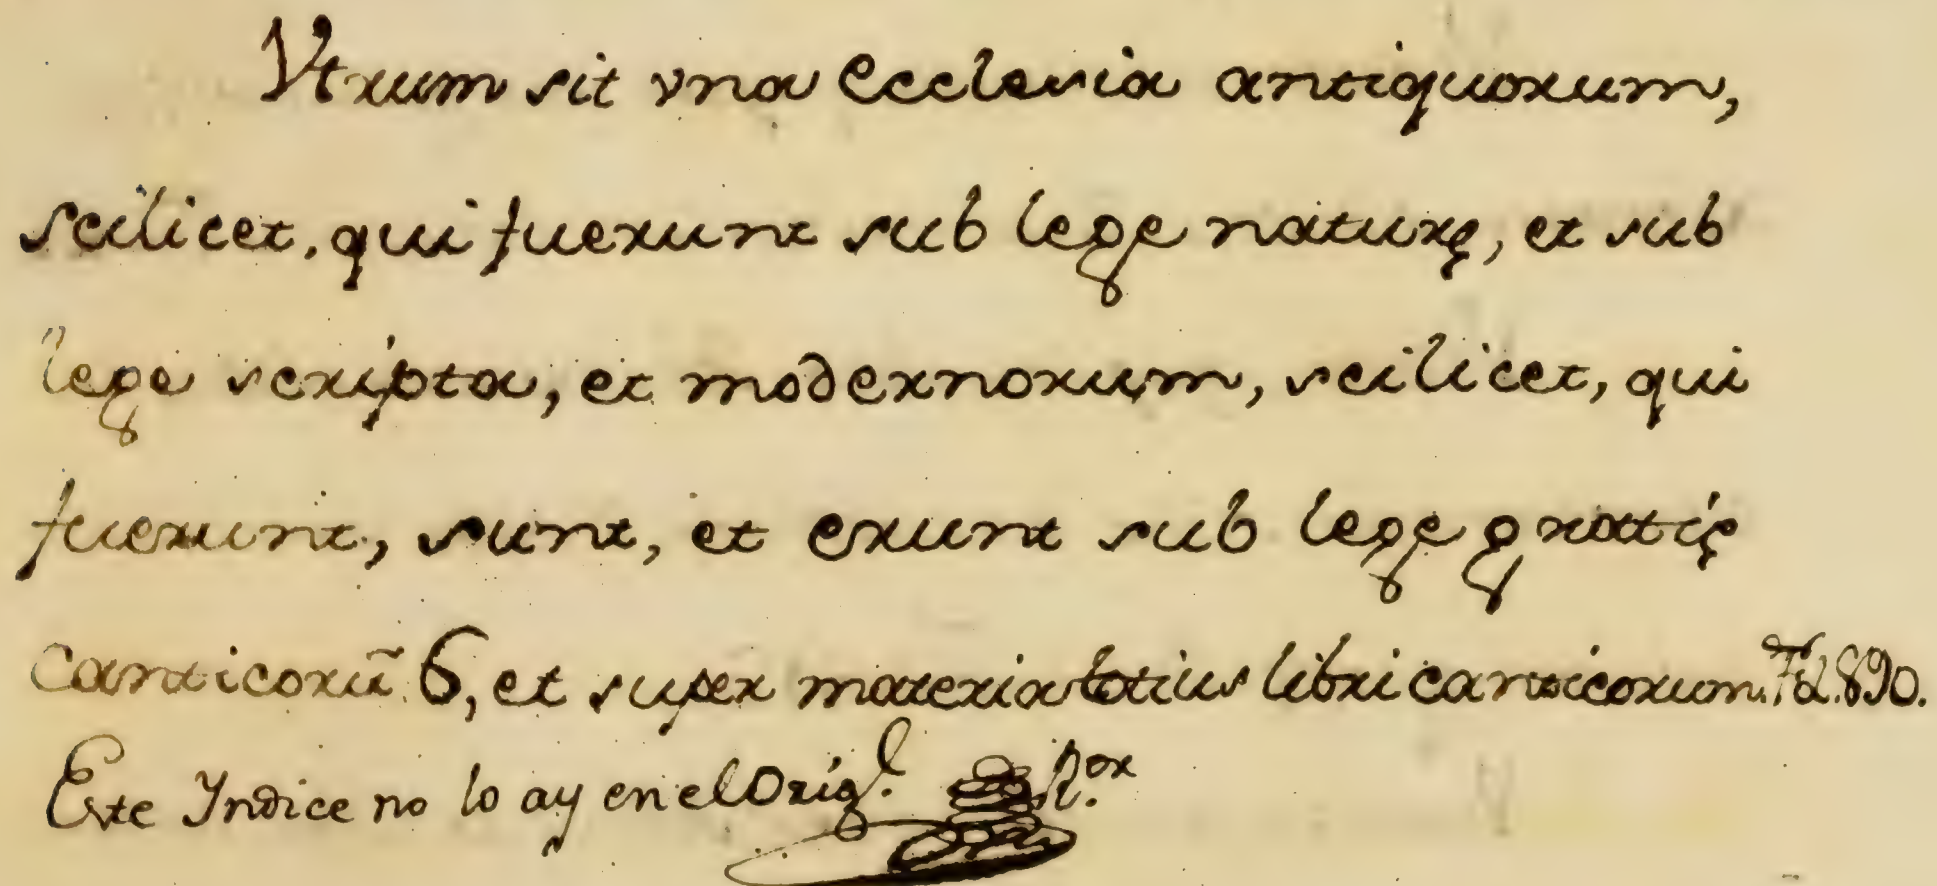 Vtrum sit vna Ecclesia antiquorum,
scilicet, qui fuerunt sub lege naturę, et sub
lege scripta, et modernorum, scilicet, qui
fuerunt, sunt, et erunt sub lege gratię
canticorũ 6, et super materia totius libri canticorum. Fol. 890.
Este Yndice no lo ay en el Orig.l